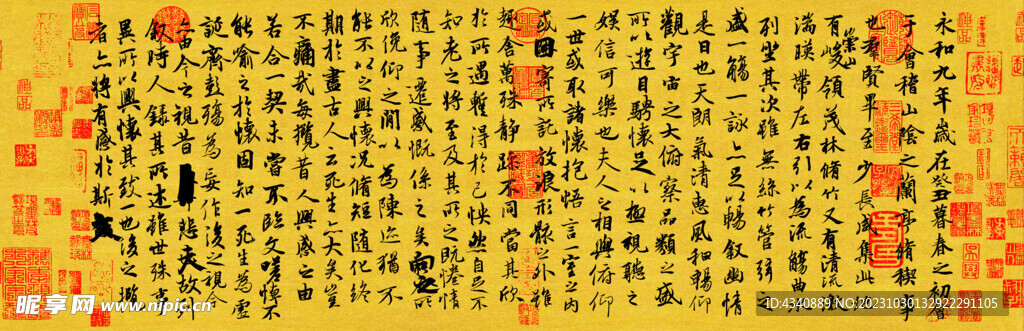 永和九年歲在癸丑暮春之初會
于會稽山陰之蘭亭脩稧事
也羣賢畢至少長咸集此
有崇山峻領茂林脩竹又有清流激
湍暎帶左右引以為流觴曲
列坐其次雖無絲竹管弦之
盛一觴一詠亦足以暢敘幽情
是日也天朗氣清惠風和暢仰
觀宇宙之大俯察品類之盛
所以遊目騁懷足以極視聽之
娛信可樂也夫人之相與俯仰
一世或取諸懷抱悟言一室之內
或因寄所託放浪形骸之外雖
趣舍萬殊靜躁不同當其欣
於所遇蹔得於己怏然自足不
知老之將至及其所之既惓情
隨事遷感慨係之矣向之所
欣俛仰之閒以為陳迹猶不
能不以之興懷況脩短隨化終
期於盡古人云死生亦大矣豈
不痛哉每攬昔人興感之由
若合一契未嘗不臨文嗟悼不
能喻之於懷固知一死生為虛
誕齊彭殤為妄作後之視今
亦由今之視昔悲夫故列
敘時人錄其所述雖世殊事
異所以興懷其致一也後之攬
者亦將有感於斯文
昵享网 www.nipic.cn
ID:4340889 NO:20231030132922291105